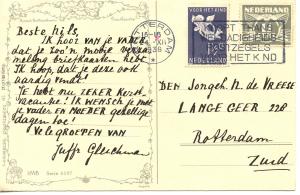 Beste Nils,
Ik hoor van je vader
dat je zoo'n mooie verza-
meling briefkaarten hebt.
Ik hoop, dat je deze ook
aardig vindt.
Je hebt nu zeker Kerst-
vacantie! Ik wensch je met
je vader en moeder gezellige
dagen toe!
Vele groeten van
Juffr Gleichman
ROTTERDAM
1936
VOOR HET KIND
NEDERLAND
NEDERLAND
POSTZEGELS
HET KIND
Den Jongeh. N. de Vreese
Lange Geer 22B
Rotterdam
Zuid